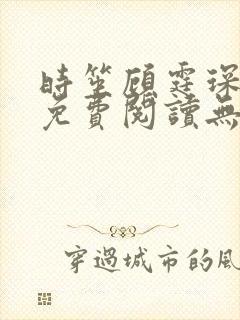 時笙顧霆琛
免費閱讀無
穿過城市的風